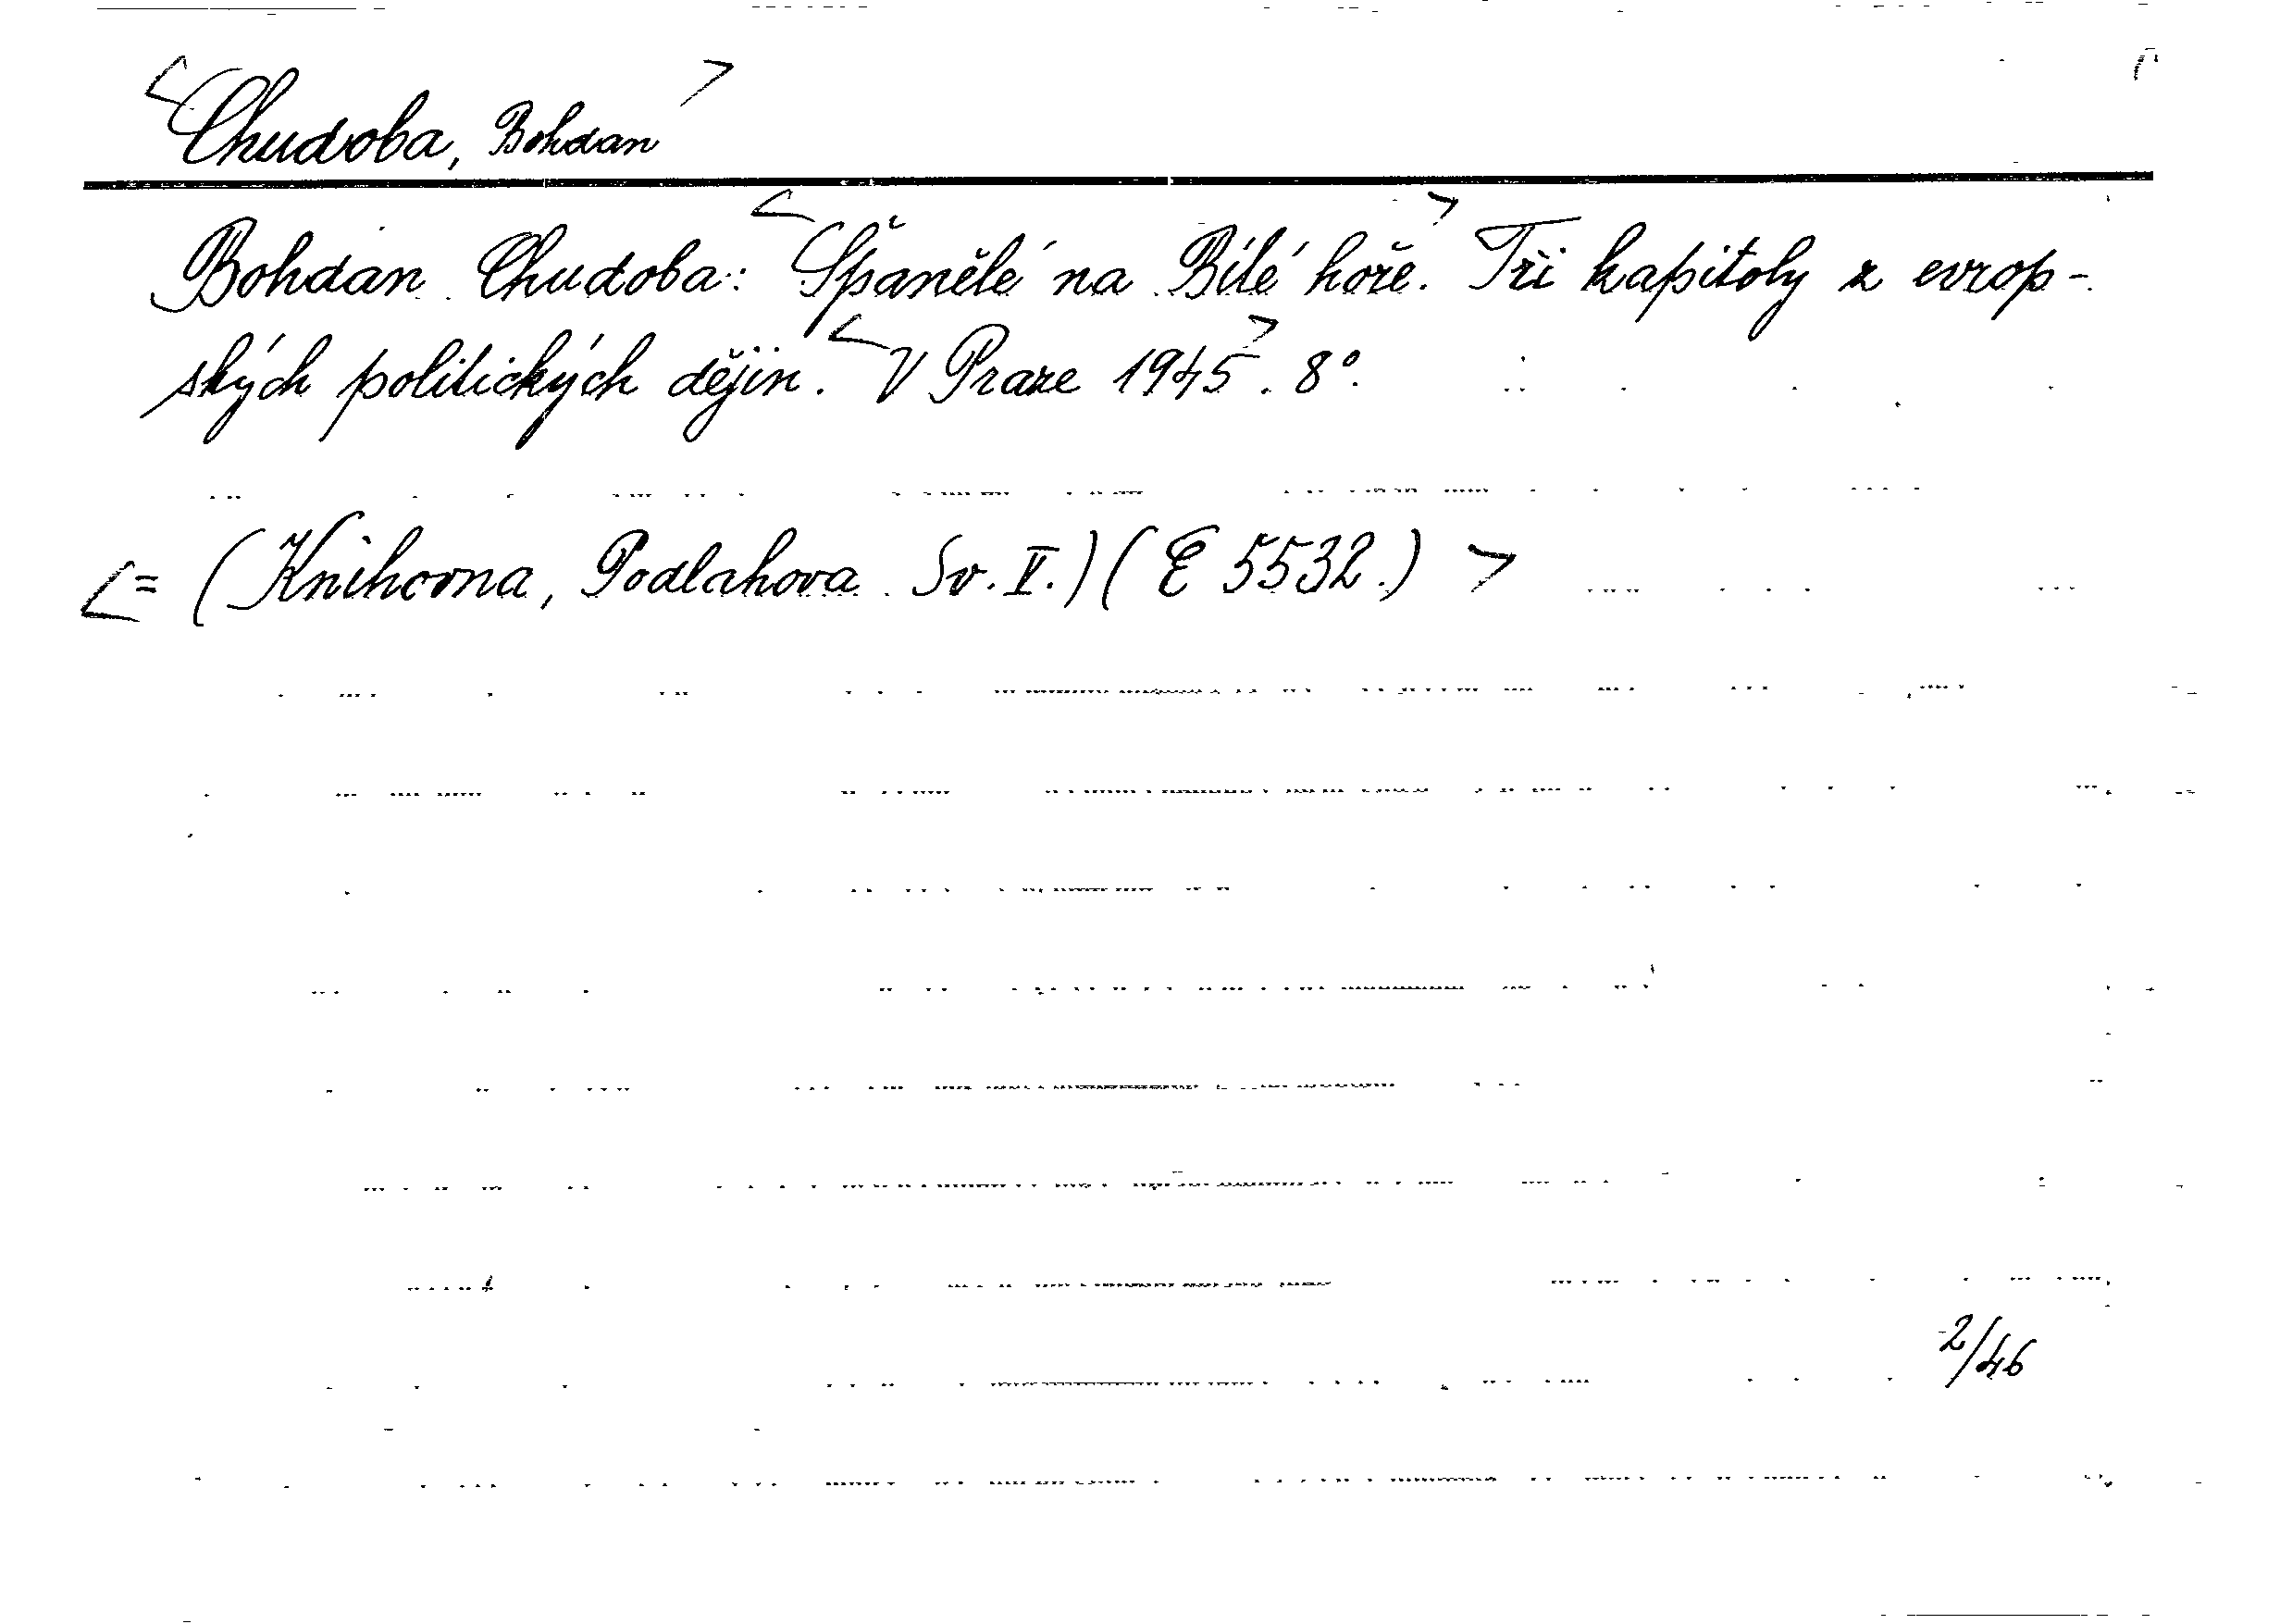 <Chudoba, Bohdan>
Bohdan Chudoba: <Španělé na Bílé hoře.> Tři kapitoly z evrop-
ských politických dějin. <V Praze 1945>. 8°.
<= (Knihovna, Podlahova Sv. II.) (E 5532.) >
2/46